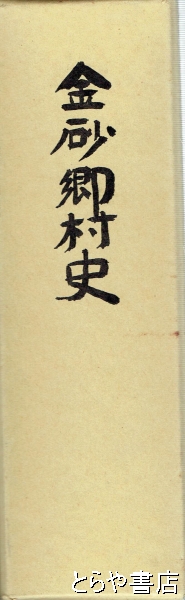 金砂郷村史
とらや書店